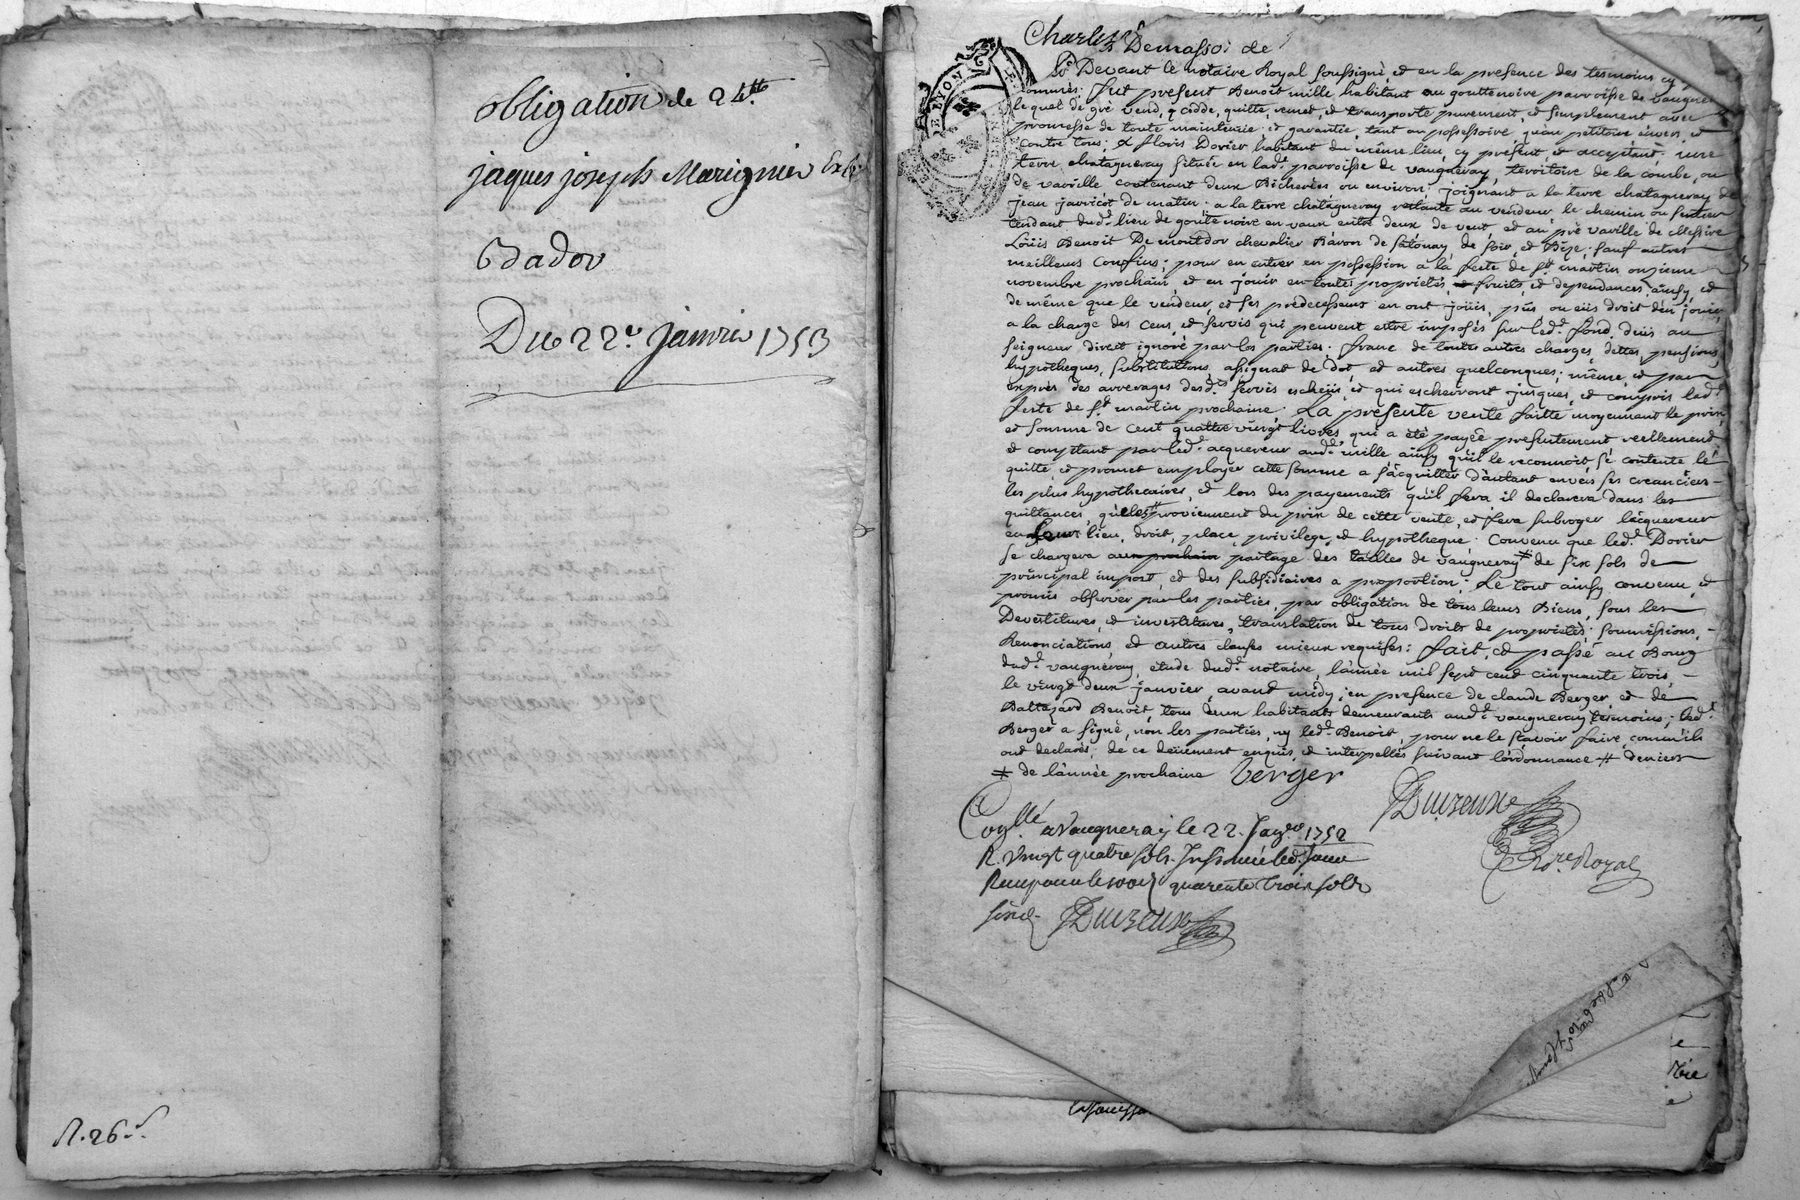 obligation de 24tt
jaques joseph Marignier
Badov
Du 22e janvier 1753
R. 26 s.
Charles Demassoi de
DE LYON
Pr Devant le notaire Royal soussigné et en la presence des tesmoins cy
nommés; fut present Benoit mille habitant au gouttenoire parroisse de vaugneray
lequel de gré vend, cedde, quitte, remet, et transporte purement, et simplement avec
promesse de toute maintenüe et garantie, tant au possessoire qu'au petitoire envers et
contre tous; a floris Dorier habitant du même lieu, cy présent, et acceptant; une
terre chatagneray située en lad.e parroisse de vaugneray, territoire de la courbe, ou
de vaville contenant deux Bicherées ou environ; joignant a la terre chatagneray de
jean javricot de matin; a la terre chatagneray restante au vendeur le chemin ou sentier
tendant dud.t lieu de goutenoire en vaux entre deux de vent, et au pré vaville de Messire
Loüis Benoit De montdor chevalier Baron de satonay de soir, et Bize; sauf autres
meilleurs confins; pour en entrer en possession a la feste de st martin onzieme
novembre prochain et en jouir en toutes proprietés, fruits, et dependances, ainsy, et
de même que le vendeur, et ses predecesseurs en ont joüis, pûs ou eüs droit d'en jouir,
a la charge des cens, et servis qui peuvent estre imposés sur led.t fond, deüs au
seigneur direct ignoré par les parties; franc de toutes autres charges, dettes, pensions,
hypotheques, substitutions, assignat de dot, et autres quelconques; même, et par
exprès des arrerages desd.ts servis escheüs, et qui escherront jusques, et compris lad.e
feste de st martin prochaine. La présente vente faitte moyennant le prix
et somme de cent quattre vingt livres, qui a été payée presentement reellement
et comptant par led.t acquereur aud.t mille, ainsy qu'il le reconnoit, s'é contente l'é
quitte et promet employer cette somme a s'acquitter d'autant envers ses creanciers
les plus hypothecaires, et lors des payements qu'il fera il declarera dans les
quittances, qu'elles proviennent du prix de cette vente, et fera subroger l'acquereur
en leurs lieu, droit, place, privilege, et hypotheque; Convenu que led.t Dorier
se chargera au prochain partage des tailles de vaugneray # de six sols de
principal impost et des subsidiaires a proportion; Le tout ainsy convenu, et
promis observer par les parties, par obligation de tous leurs Biens, sous les
Devestitures, et investitures, translation de tous droits de proprietés; soumissions,
Renonciations, et autres clauses mieux requises: fait, et passé au Bourg
dud.t vaugneray, etude dud.t notaire, l'année mil sept cent cinquante trois,
le vingt deux janvier, avant midy; en presence de claude Berger, et de
Baltazard Benoit, tous deux habitants demeurants aud.t vaugneray, tesmoins; led.t
Berger a signé, non les parties, ny led.t Benoit, pour ne le sçavoir faire, comm'ils
ont declarés; de ce deüement enquis, et interpellés suivant l'ordonnance # deniers
# de l'année prochaine Verger
Conllé a Vaugneray le 22. Janv.er 1752
R. Vingt quatre sols
quarente trois sols
Duizeux
Nore Royal
Duizeux